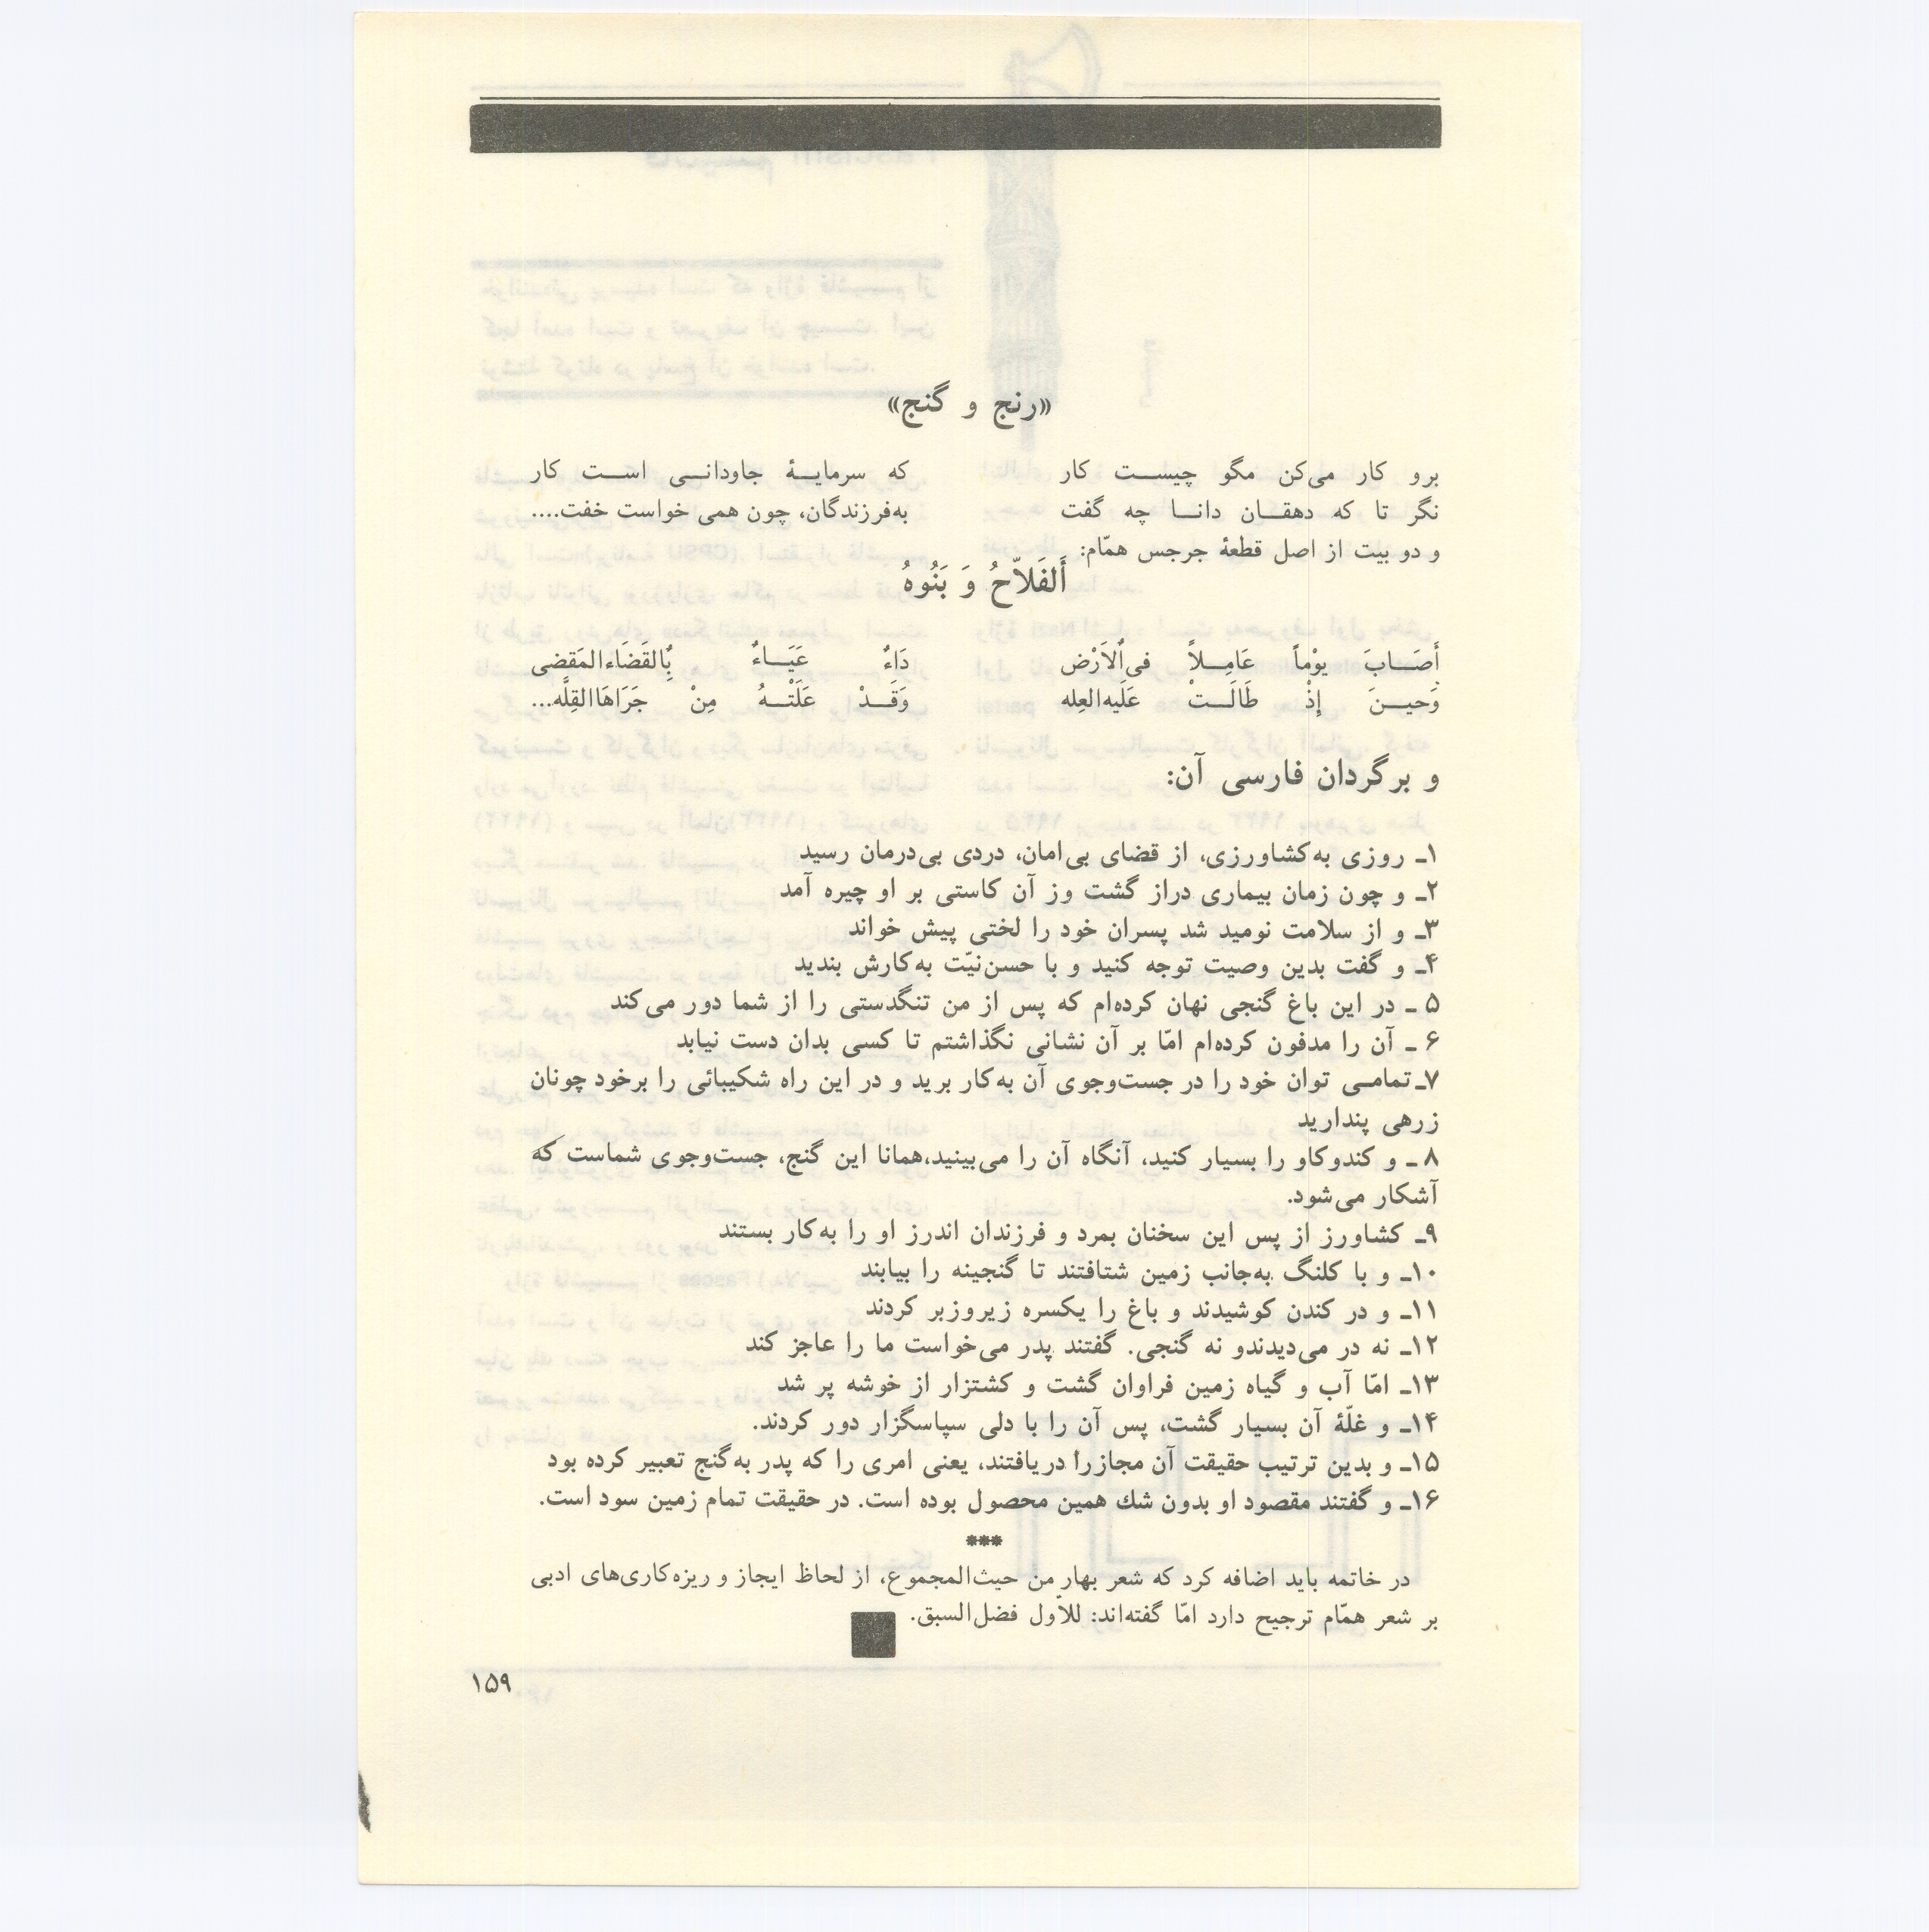 «رنج و گنج»
برو کار می‌کن مگو چیست کار که سرمایهٔ جاودانی است کار
نگر تا که دهقان دانا چه گفت به‌فرزندگان، چون همی خواست خفت....
و دو بیت از اصل قطعهٔ جرجس همّام:
أَلفَلاّحُ وَ بَنُوهُ
أَصَابَ يوْماً عَامِلاً فی‌اْلاَرْض دَاءٌ عَيَاءٌ بِالقَضَاءالمَقضی
وَحينَ إِذْ طَالَتْ عَلَيه‌العِله وَقَدْ عَلَتْهُ مِنْ جَرَاهَاالقِلَّه...
و برگردان فارسی آن:
۱ـ روزی به‌کشاورزی، از قضای بی‌امان، دردی بی‌درمان رسید
۲ـ و چون زمان بیماری دراز گشت وز آن کاستی بر او چیره آمد
۳ـ و از سلامت نومید شد پسران خود را لختی پیش خواند
۴ـ و گفت بدین وصیت توجه کنید و با حسن‌نیّت به‌کارش بندید
۵ ـ در این باغ گنجی نهان کرده‌ام که پس از من تنگدستی را از شما دور می‌کند
۶ ـ آن را مدفون کرده‌ام امّا بر آن نشانی نگذاشتم تا کسی بدان دست نیابد
۷ـ تمامی توان خود را در جست‌وجوی آن به‌کار برید و در این راه شکیبائی را برخود چونان
زرهی پندارید
۸ ـ و کندوکاو را بسیار کنید، آنگاه آن را می‌بینید،همانا این گنج، جست‌وجوی شماست که
آشکار می‌شود.
۹ـ کشاورز از پس این سخنان بمرد و فرزندان اندرز او را به‌کار بستند
۱۰ـ و با کلنگ به‌جانب زمین شتافتند تا گنجینه را بیابند
۱۱ـ و در کندن کوشیدند و باغ را یکسره زیروزبر کردند
۱۲ـ نه در می‌دیدندو نه گنجی. گفتند پدر می‌خواست ما را عاجز کند
۱۳ـ امّا آب و گیاه زمین فراوان گشت و کشتزار از خوشه پر شد
۱۴ـ و غلّهٔ آن بسیار گشت، پس آن را با دلی سپاسگزار دور کردند.
۱۵ـ و بدین ترتیب حقیقت آن مجازرا دریافتند، یعنی امری را که پدر به‌گنج تعبیر کرده بود
۱۶ـ و گفتند مقصود او بدون شك همین محصول بوده است. در حقیقت تمام زمین سود است.
***
در خاتمه باید اضافه کرد که شعر بهار من حیث‌المجموع، از لحاظ ایجاز و ریزه‌کاری‌های ادبی
بر شعر همّام ترجیح دارد امّا گفته‌اند: للاّول فضل‌السبق.
۱۵۹